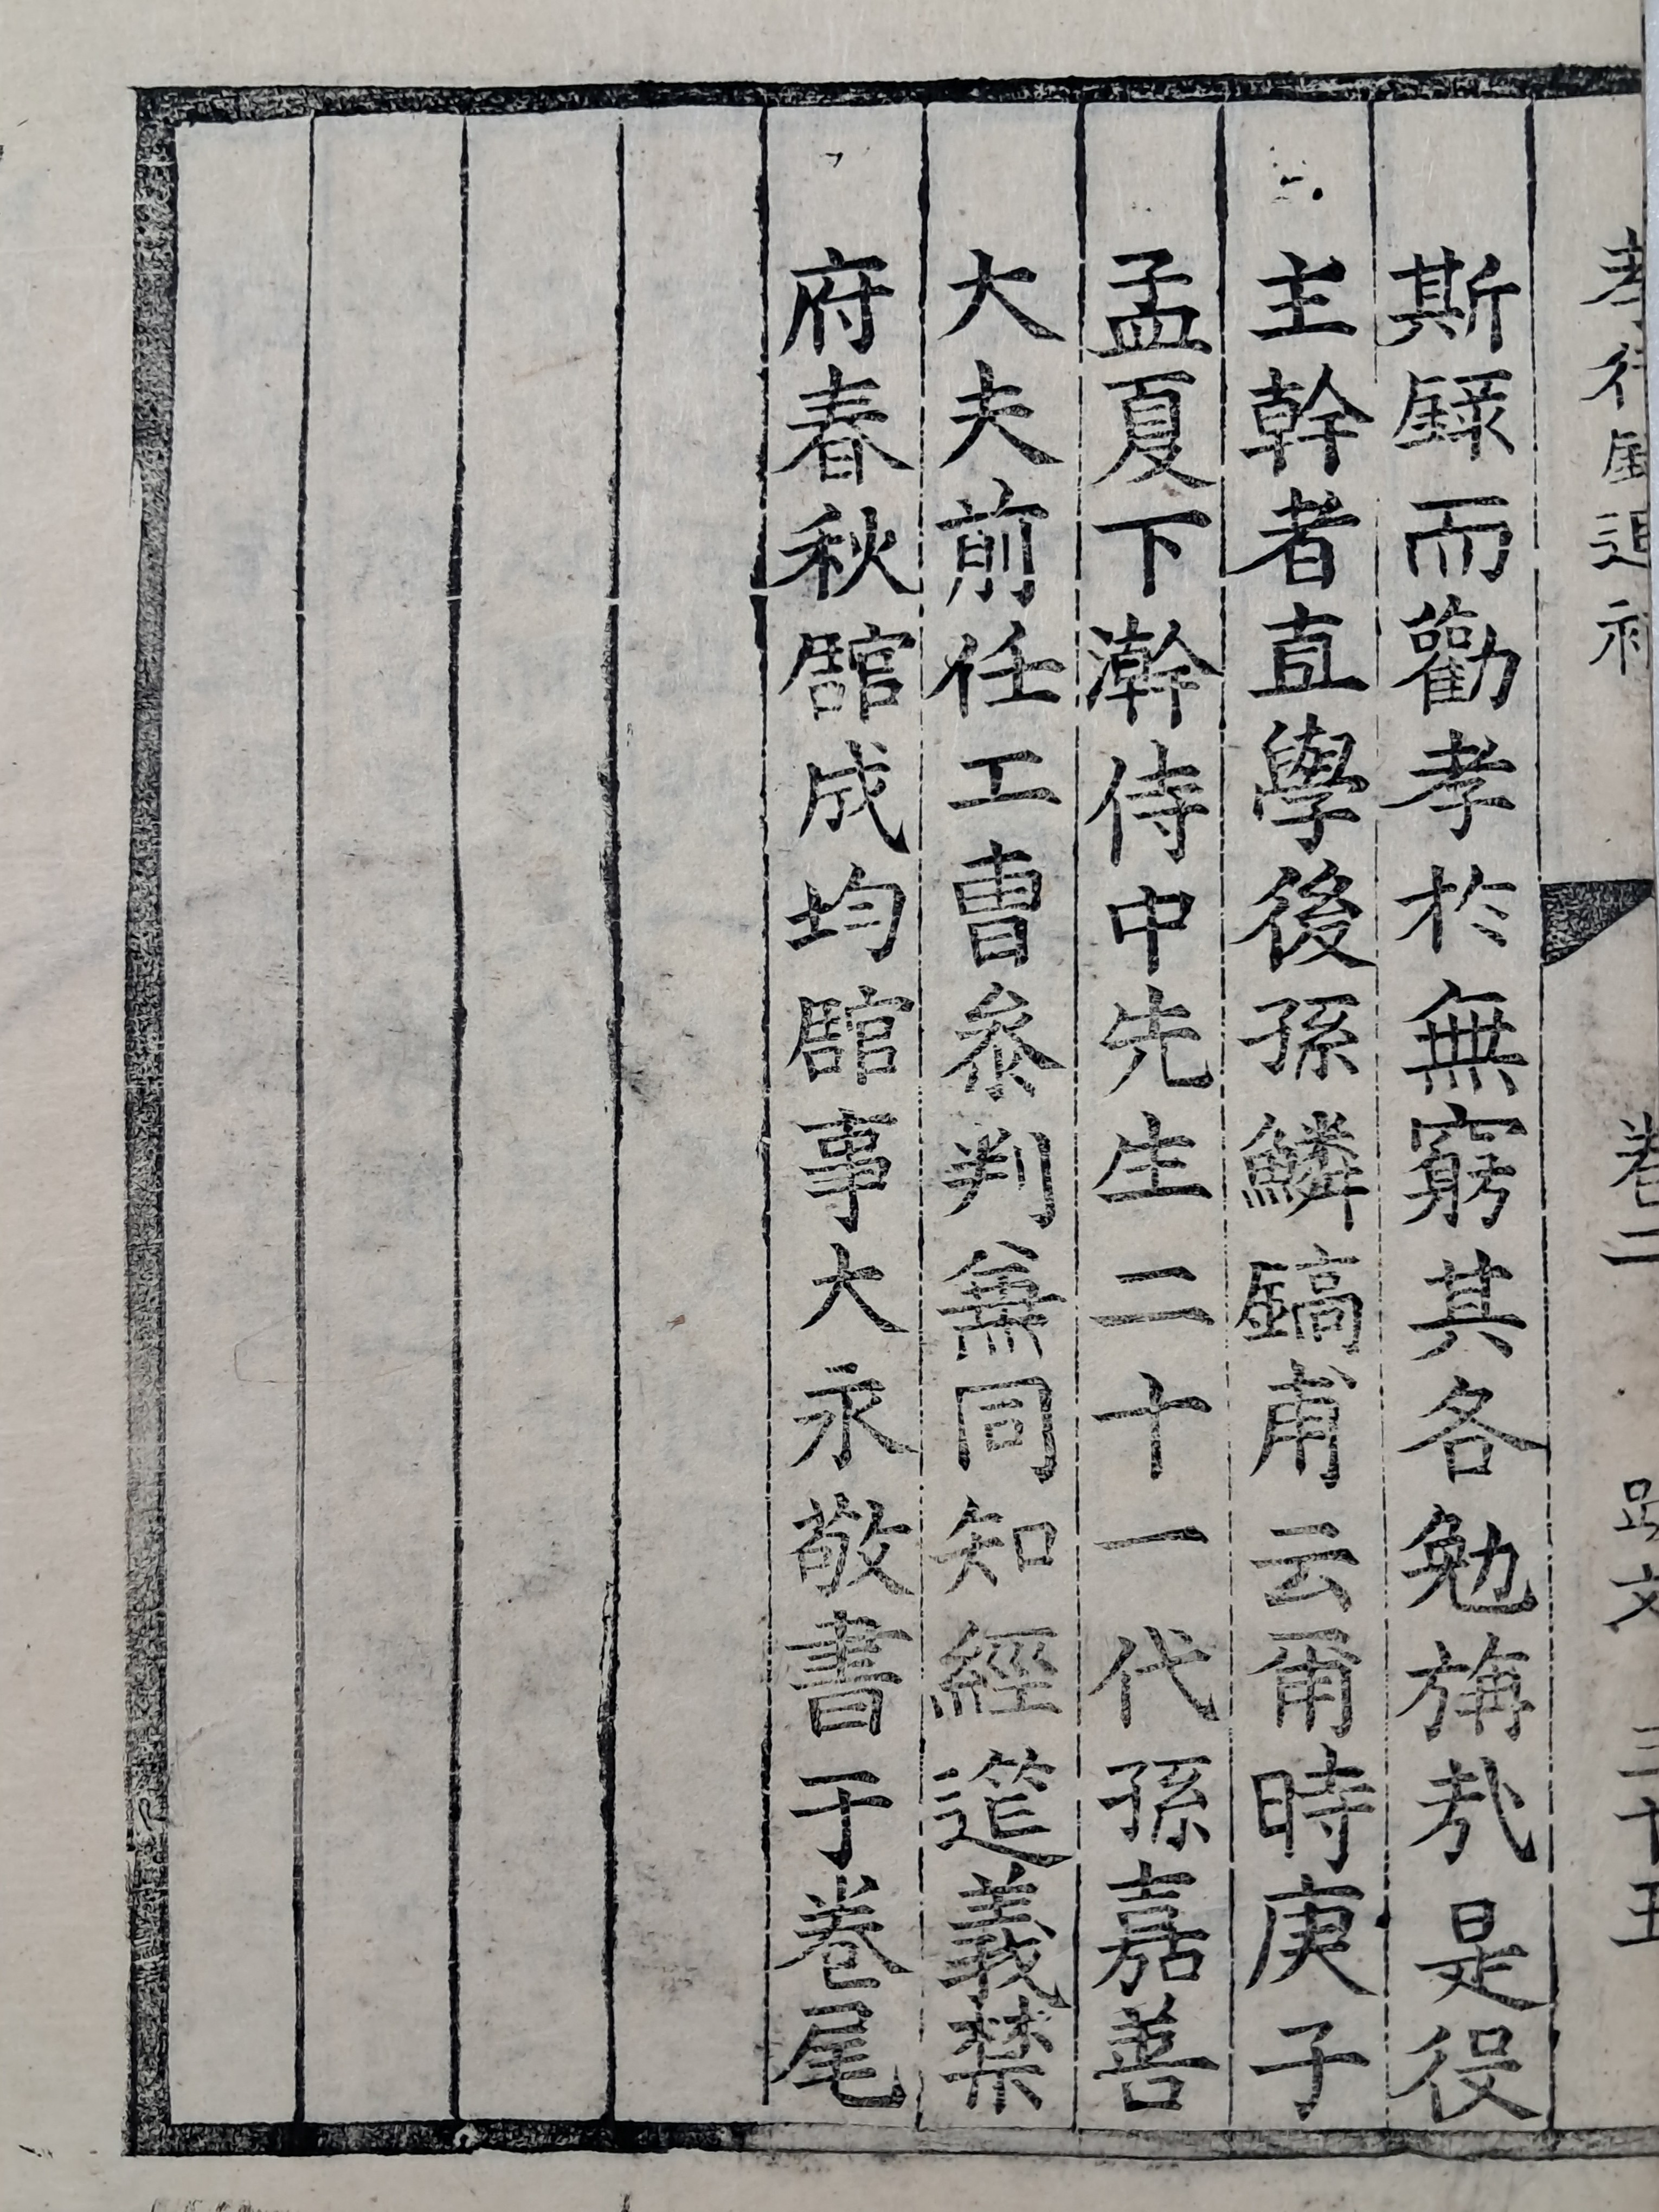 孝行錄追補 卷二 跋文 三十五
斯錄而勸孝於無窮其各勉旃㢤是役
主幹者直學後孫鱗鎬甫云甯時庚子
孟夏下澣侍中先生二十一代孫嘉善
大夫前任工曹叅判兼同知經筵義禁
府春秋館成均館事大永敬書于卷尾